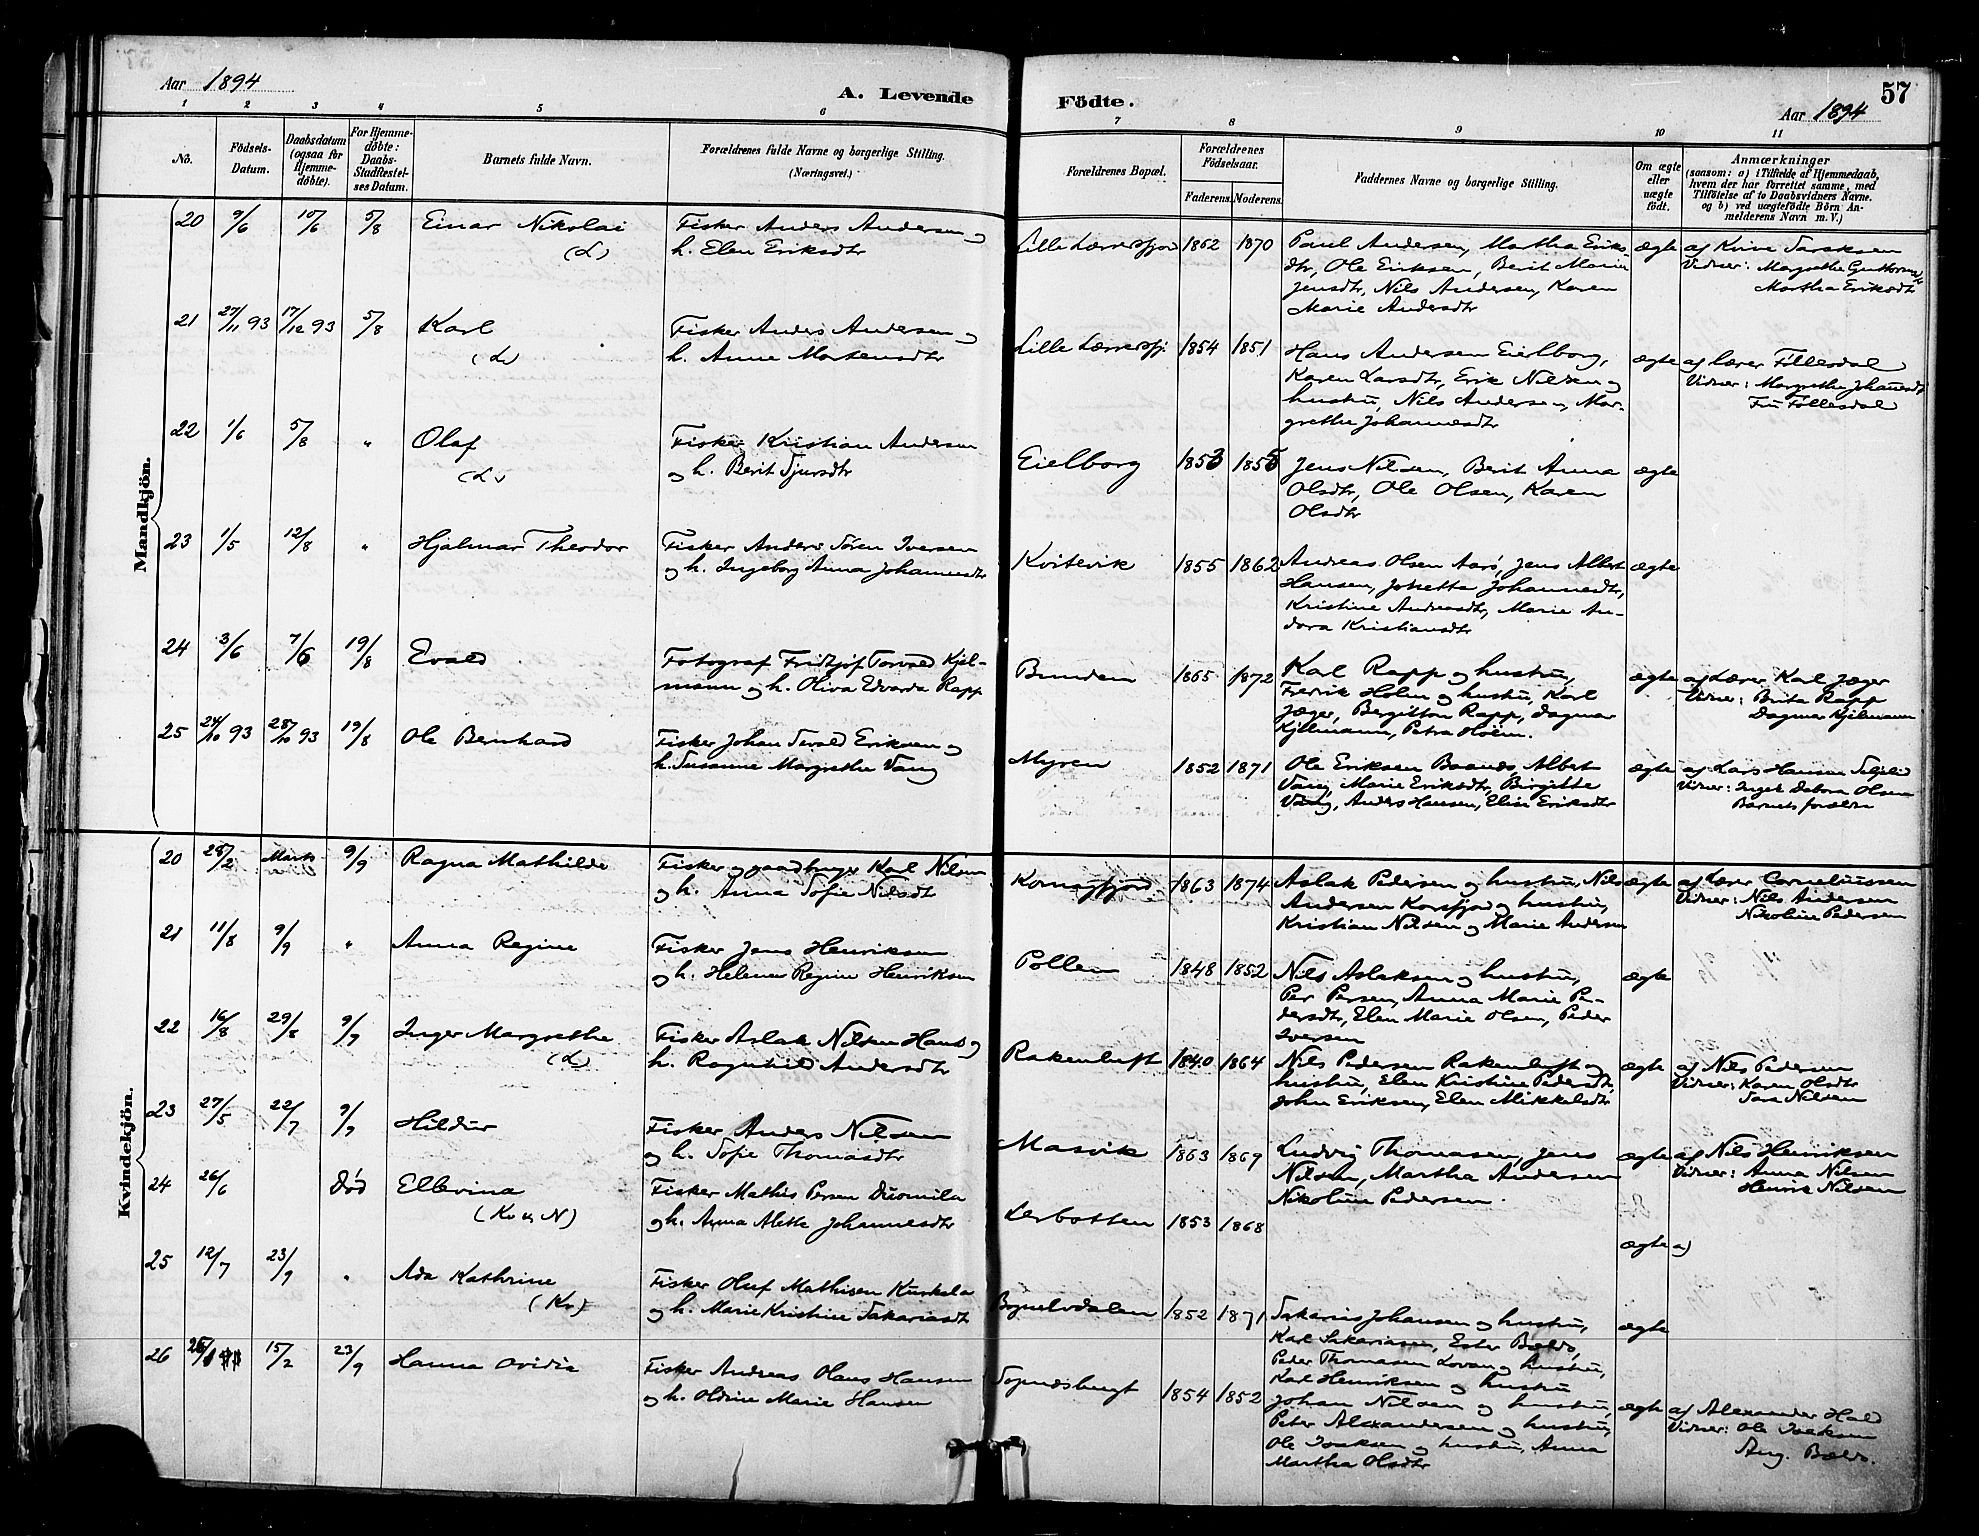 Aar 1894
A. Levende
Födte.
57
Aar 1894
1 2 3 4 5 6
7 8 9 10 11
Nö.
Födsels-Datum.
Daabsdatum (ogsaa for Hjemme-döbte).
For Hjemme-döbte: Daabs-Stadfæstel-ses Datum.
Barnets fulde Navn.
Forældrenes fulde Navne og borgerlige Stilling.
(Næringsvei.)
Forældrenes Bopæl.
Forældrenes Födselsaar.
Faderens. Moderens.
Faddernes Navne og borgerlige Stilling.
Om ægte eller uægte födt.
Anmærkninger
(saasom: a) i Tilfælde af Hjemmedaab, hvem der har forrettet samme, med Tilföielse af to Daabsvidners Navne. og b) ved uægtefödte Börn An-melderens Navn m. V.)
Mandkjön.
20 9/6 10/6 5/8 Einar Nikolai (L) Fisker Anders Andersen og
h. Elen Eriksdtr
Lille Lerresfjord 1862 1870 Paul Andersen, Martha Eriks
dtr, Ole Eriksen, Berit Marie
Jensdtr, Nils Andersen, Karen
Marie Andersdtr
ægte
Vidner: Margrethe
Martha Eriksdtr
21 27/11 93 17/12 93 5/8 Karl (L) Fisker Anders Andersen og
h. Anne Mortensdtr
Lille Lerresfj. 1854 1851 Hans Andersen Eielborg,
Karen Larsdtr, Erik Nilsen og
hustru, Nils Andersen, Mar-
grethe Johannesdtr
ægte
af Lærer Føllesdal
Vidner: Margrethe Johannesdtr
Fru Føllesdal
22 1/6 5/8 " Olaf (L) Fisker Kristian Andersen
og h. Berit Sjursdtr
Eielborg 1853 1855 Jens Nilsen, Berit Anna
Olsdtr, Ole Olsen, Karen
Olsdtr
ægte
23 1/5 12/8 " Hjalmar Theodor Fisker Anders Søren Iversen
og h. Ingeborg Anna Johannesdtr
Kvitevik 1855 1862 Andreas Olsen Aarö, Jens Albert
Hansen, Josetta Johannesdtr,
Kristine Andreasdtr, Marie An-
dora Kristiansdtr
ægte
24 3/6 7/6 19/8 Evald Fotograf Fridtjof Torvald Kjel-
mann og h. Oliva Edvarda Rapp
Bunden 1865 1872 Karl Rapp og hustru,
Fredrik Holm og hustru, Karl
Jæger, Bergitton Rapp, Dagmar
Kjelmann, Petra Holm.
ægte
af Lærer Karl Jæger
Vidner: Brita Rapp
Dagmar Kjelmann
25 24/10 93 28/10 93 19/8 Ole Bernhard Fisker Johan Eriksen og
h. Susanne Margrethe Vang
Myren 1852 1871 Ole Eriksen Albert
Vang, Marie Eriksdtr, Birgitte
Vang, Anders Hansen, Elise Eriksdtr
ægte
af Lars Hansen
Vidner: Debora Olsen
Barnets forældre
Kvindekjön.
20 25/2 9/9 Ragna Mathilde Fisker og gaardbruger Karl Nilsen
og h. Anna Sofie Nilsdtr
Komagfjord 1863 1874 Aslak Pedersen og hustru, Nils
Andersen Korsfjord og hustru,
Kristian Nilsen og Marie Andersen
ægte
af Lærer Corneliussen
Vidner: Nils Andersen
Nikoline Pedersen
21 11/8 9/9 " Anna Regine Fisker Jens Henriksen
og h. Helene Regine Henriksen
Pollen 1848 1852 Nils Aslaksen og hustru,
Per Persen, Anna Marie Pe-
dersdtr, Elen Marie Olsen, Peder
Iversen
ægte
22 16/8 29/8 9/9 Inger Margrethe (L) Fisker Aslak Nilsen Hans og
h. Ragnhild Andersdtr
Rakenluft 1840 1864 Nils Pedersen Rakenluft og
hustru, Elen Kristine Pedersdtr,
John Eriksen, Elen Mikkelsdtr
ægte
af Nils Pedersen
Vidner: Karen Olsdtr
Sara Nilsen
23 27/5 22/7 9/9 Hildur Fisker Anders Nilsen
og h. Sofie Thomasdtr
Masvik 1863 1869 Ludvig Thomasen, Jens
Nilsen, Martha Andersen
Nikoline Pedersen.
ægte
af Nils Henriksen
Vidner: Anna Nilsen
Henrik Nilsen
24 26/6 død Ellevina (Kv. N) Fisker Mathis Persen Duomila
og h. Anna Aleth Johannesdtr
Lerbotten 1853 1868 ægte a)
25 12/7 23/9 " Ada Kathrine (Kv) Fisker Oluf Mathisen Kurkela
og h. Marie Kristine Sakariasdt
Bognelvdalen 1852 1871 Sakarias Johansen og hustru,
Karl Sakariasen, Ester Bælo,
Peder Thomasen Lovan og hustru,
Karl Henriksen og hustru
ægte
26 15/2 23/9 Hanna Ovidia Fisker Andreas Olaus Hansen
og h. Oldine Marie Hansen
1854 1852 Johan Nilsen og hustru,
Peter Alexandersen og hustru,
Ole Isaksen og hustru, Anna
Martha Olsdtr
ægte
af Alexander Hald
Vidner: Ole Isaksen
Aug. Bælo.